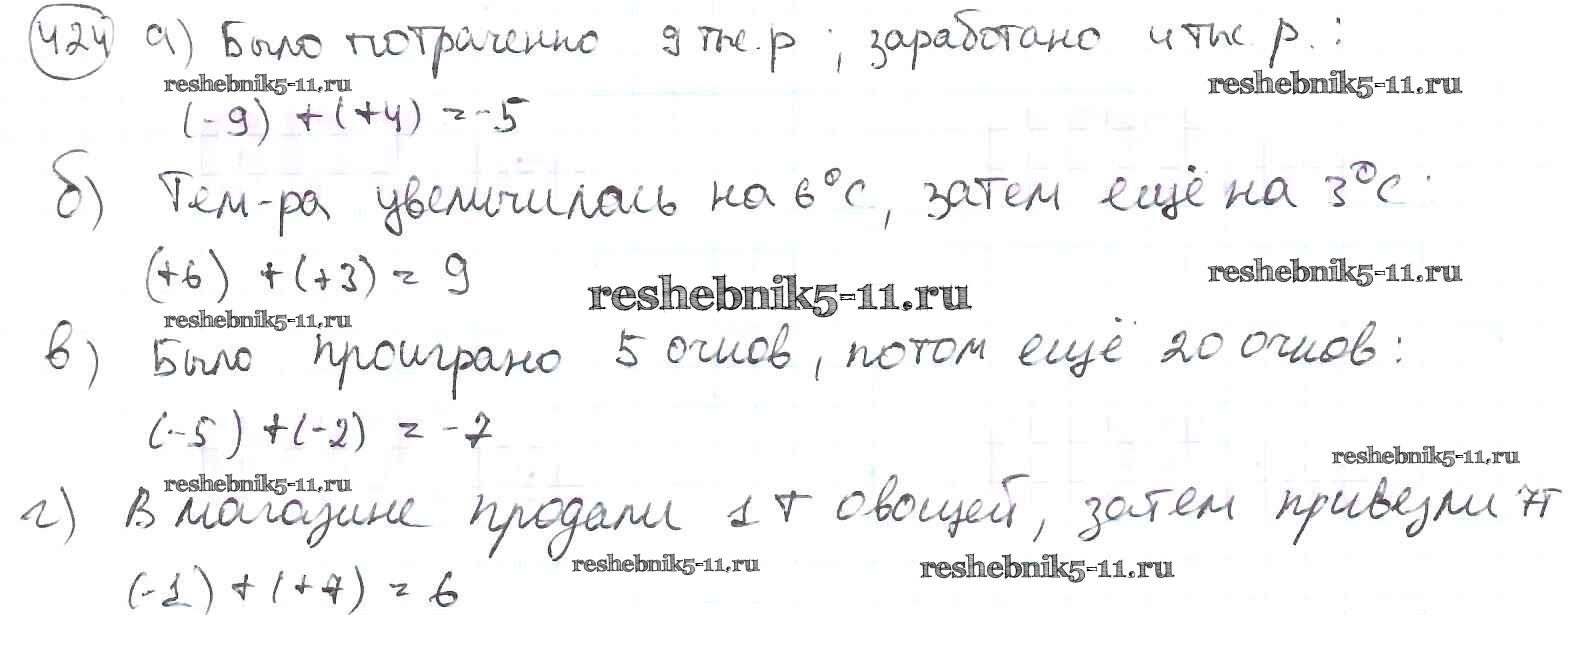 424 а) Было потраченно 9 тыс. р ; заработано 4 тыс. р. :
reshebnik5-11.ru reshebnik5-11.ru
(-9) + (+4) = -5
б) Тем-ра увеличилась на 6°С, затем ещё на 3°С :
(+6) + (+3) = 9
reshebnik5-11.ru reshebnik5-11.ru
reshebnik5-11.ru
в) Было проиграно 5 очков, потом ещё 20 очков :
(-5) + (-2) = -7
reshebnik5-11.ru
reshebnik5-11.ru
г) В магазине продали 1 т овощей, затем привезли 7т
reshebnik5-11.ru reshebnik5-11.ru
(-1) + (+7) = 6